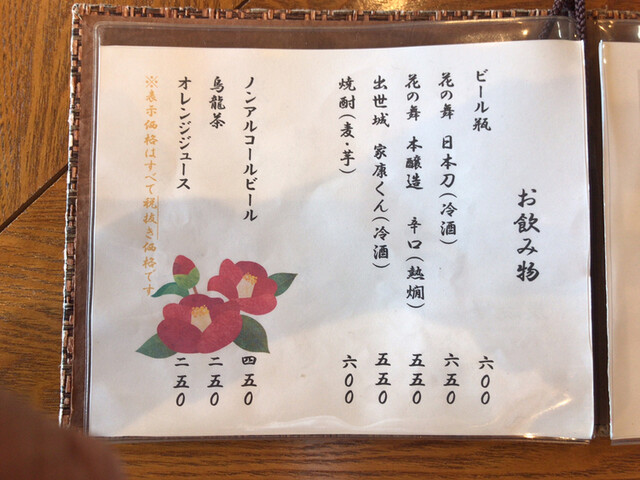 お飲み物
ビール瓶 六00
花の舞 日本刀(冷酒) 六五0
花の舞 本醸造 辛口(熱燗) 五五0
出世城 家康くん(冷酒) 五五0
焼酎(麦・芋) 六00
ノンアルコールビール 四五0
烏龍茶 二五0
オレンジジュース 二五0
※表示価格はすべて税抜き価格です